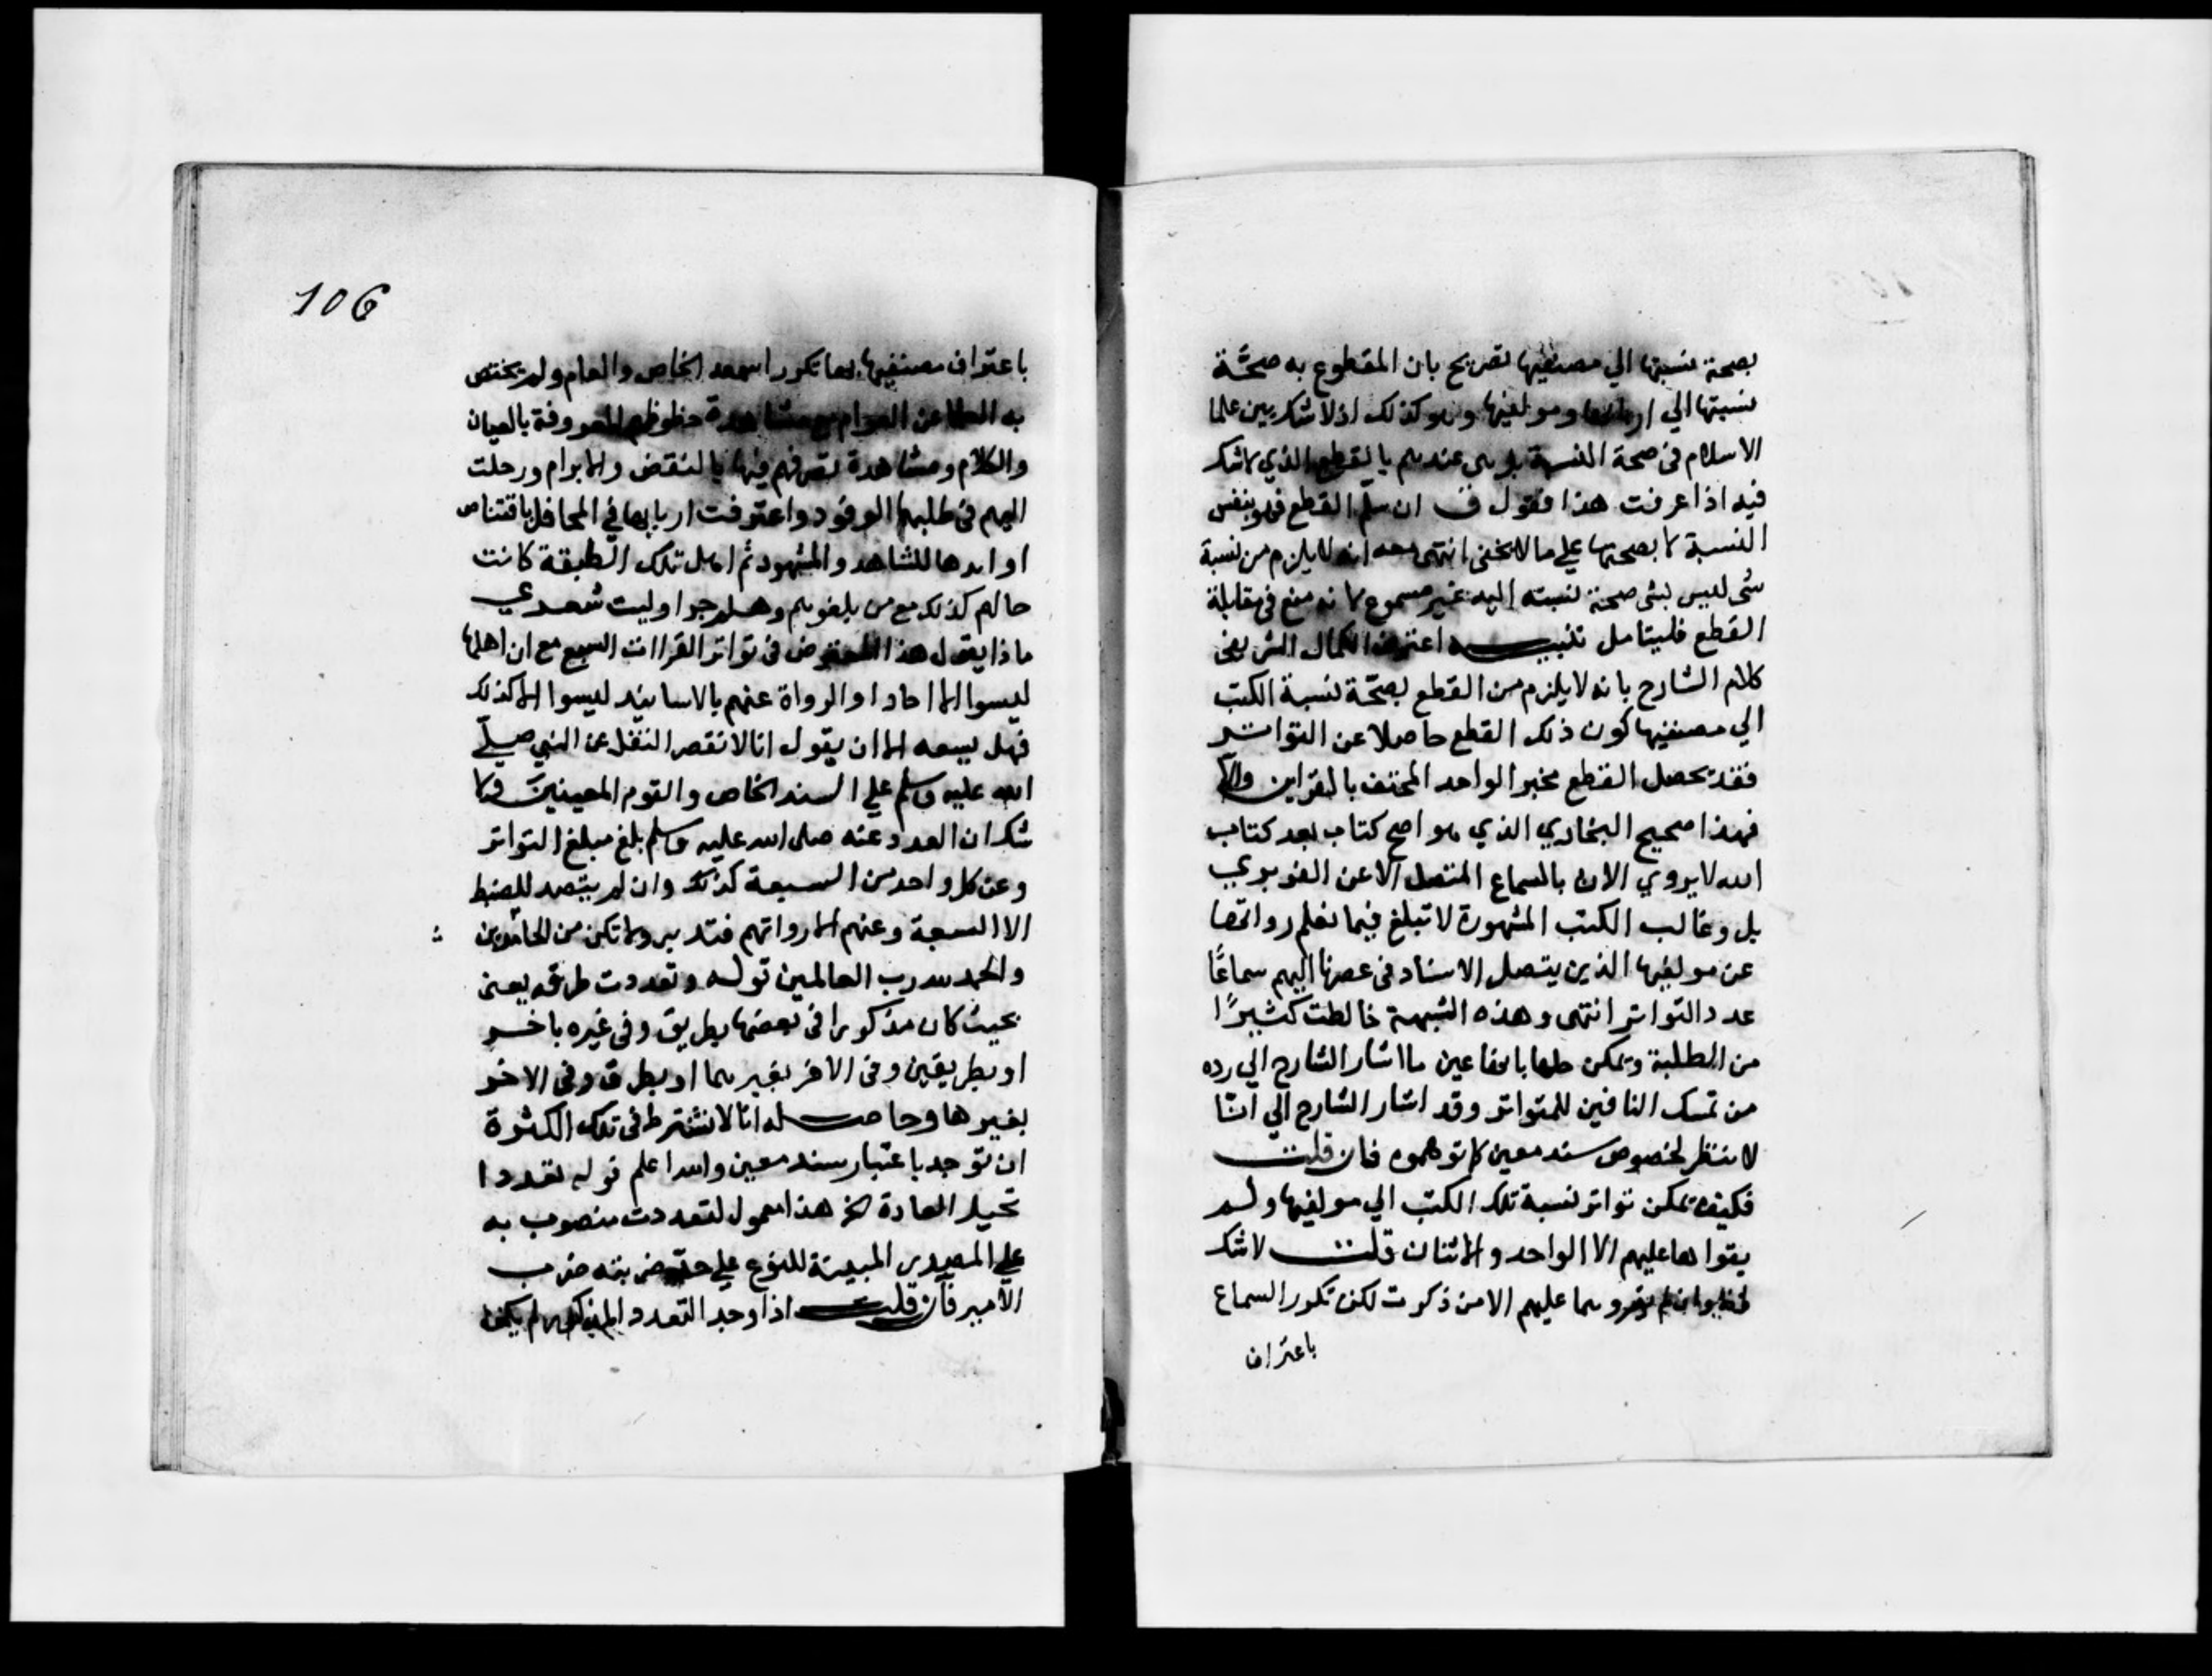 بصحة نسبتها الي مصنفيها تصريح بان المقطوع به صحَّة
نسبتها الي اربابها ومولفيها وهو كذلك اذ لا شك بين علما
الاسلام في صحة النسبة بل هي عندهم بالقطع الذي لا شك
فيه اذا عرفت هذا فقول ق ان سلّم القطع فهو بنفس
النسبة لا بصحتها علي ما لا يخفي انتهي انه لا يلزم من نسبة
شي لليس بشي صحة نسبته اليه غير مسموع لانه منع في مقابلة
القطع فليتامل تنبيه اعترض الكمال الشريفي
كلام الشارح بانه لا يلزم من القطع بصحّة نسبة الكتب
الي مصنفيها كون ذلك القطع حاصلا عن التواتر
فقد يحصل القطع بخبر الواحد المحتف بالقراين والا
فهذا صحيح البخاري الذي هو اصح كتاب بعد كتاب
الله لا يروي الان بالسماع المتصل الا عن الفربري
بل وغالب الكتب المشهورة لا تبلغ فيما نعلم رواتها
عن مولفيها الذين يتصل الاسناد في عصرنا اليهم سماعًا
عدد التواتر انتهي وهذه الشبهة خالطت كثيرًا
من الطلبة ويمكن حلها بانها عين ما اشار الشارح الي رده
من تمسك النافين للمتواتر وقد اشار الشارح الي انّا
لا ننظر لخصوص سند معين كما توهموه فان قلت
فكيف يمكن تواتر نسبة تلك الكتب الي مولفيها ولم
يقراها عليهم الا الواحد والاثنان قلت لا شك
وان لم يقروها عليهم الا من ذكرت لكن تكرر السماع
باعتراف
106
باعتراف مصنفيها بها تكررا سمعه الخاص والعام ولم يختص
به العلما عن العوام مع مشاهدة حظوظهم المعروفة بالعيان
والكلام ومشاهدة تصرفهم فيها بالنقض والابرام ورحلت
اليهم في طلبها الوفود واعترفت اربابها في المحافل باقتناص
اوابدها للشاهد والمشهود ثم اهل تلك الطبقة كانت
حالهم كذلك مع من يلغوهم وهلم جرا وليت شعري
ماذا يقول هذا المعترض في تواتر القراات السبع مع ان اهلها
ليسوا الا احادا والرواة عنهم بالاسانيد ليسوا الا كذلك
فهل يسعه الا ان يقول انا لا نقصر النقل عن النبي صلّي
الله عليه وسلم علي السند الخاص والقوم المعينين ولا
شك ان العدد عنه صلى الله عليه وسلم بلغ مبلغ التواتر
وعن كل واحد من السبعة كذلك وان لم يتصد للضبط
الا السبعة وعنهم الا رواتهم فتدبر ولا تكن من الجامدين
والحمد لله رب العالمين قوله وتعددت طرقه يعني
بحيث كان مذكورا في بعضها بطريق وفي غيره باخر
او بطريقين وفي الاخر بغيرهما او بطرق وفي الاخر
بغيرها وحاصله انا لا نشترط في تلك الكثرة
ان توجد باعتبار سند معين والله اعلم قوله تعددا
تحيل العادة الخ هذا معمول لتعددت منصوب به
علي المصدرية المبينة للنوع علي حد ضربته ضرب
الامير فان قلت اذا وجد التعدد المذكور لم يكن